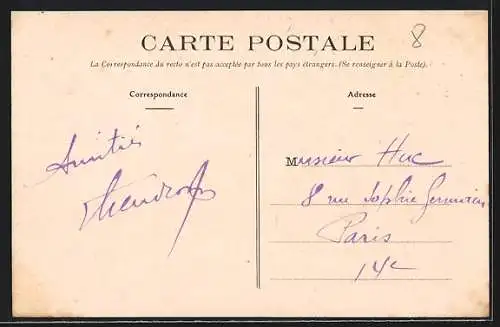 8
CARTE POSTALE
La Correspondance du recto n'est pas acceptée par tous les pays étrangers. (Se renseigner à la Poste).
Correspondance
Adresse
Amitiés
Monsieur Huc
8 rue Sophie Germain
Paris
14e